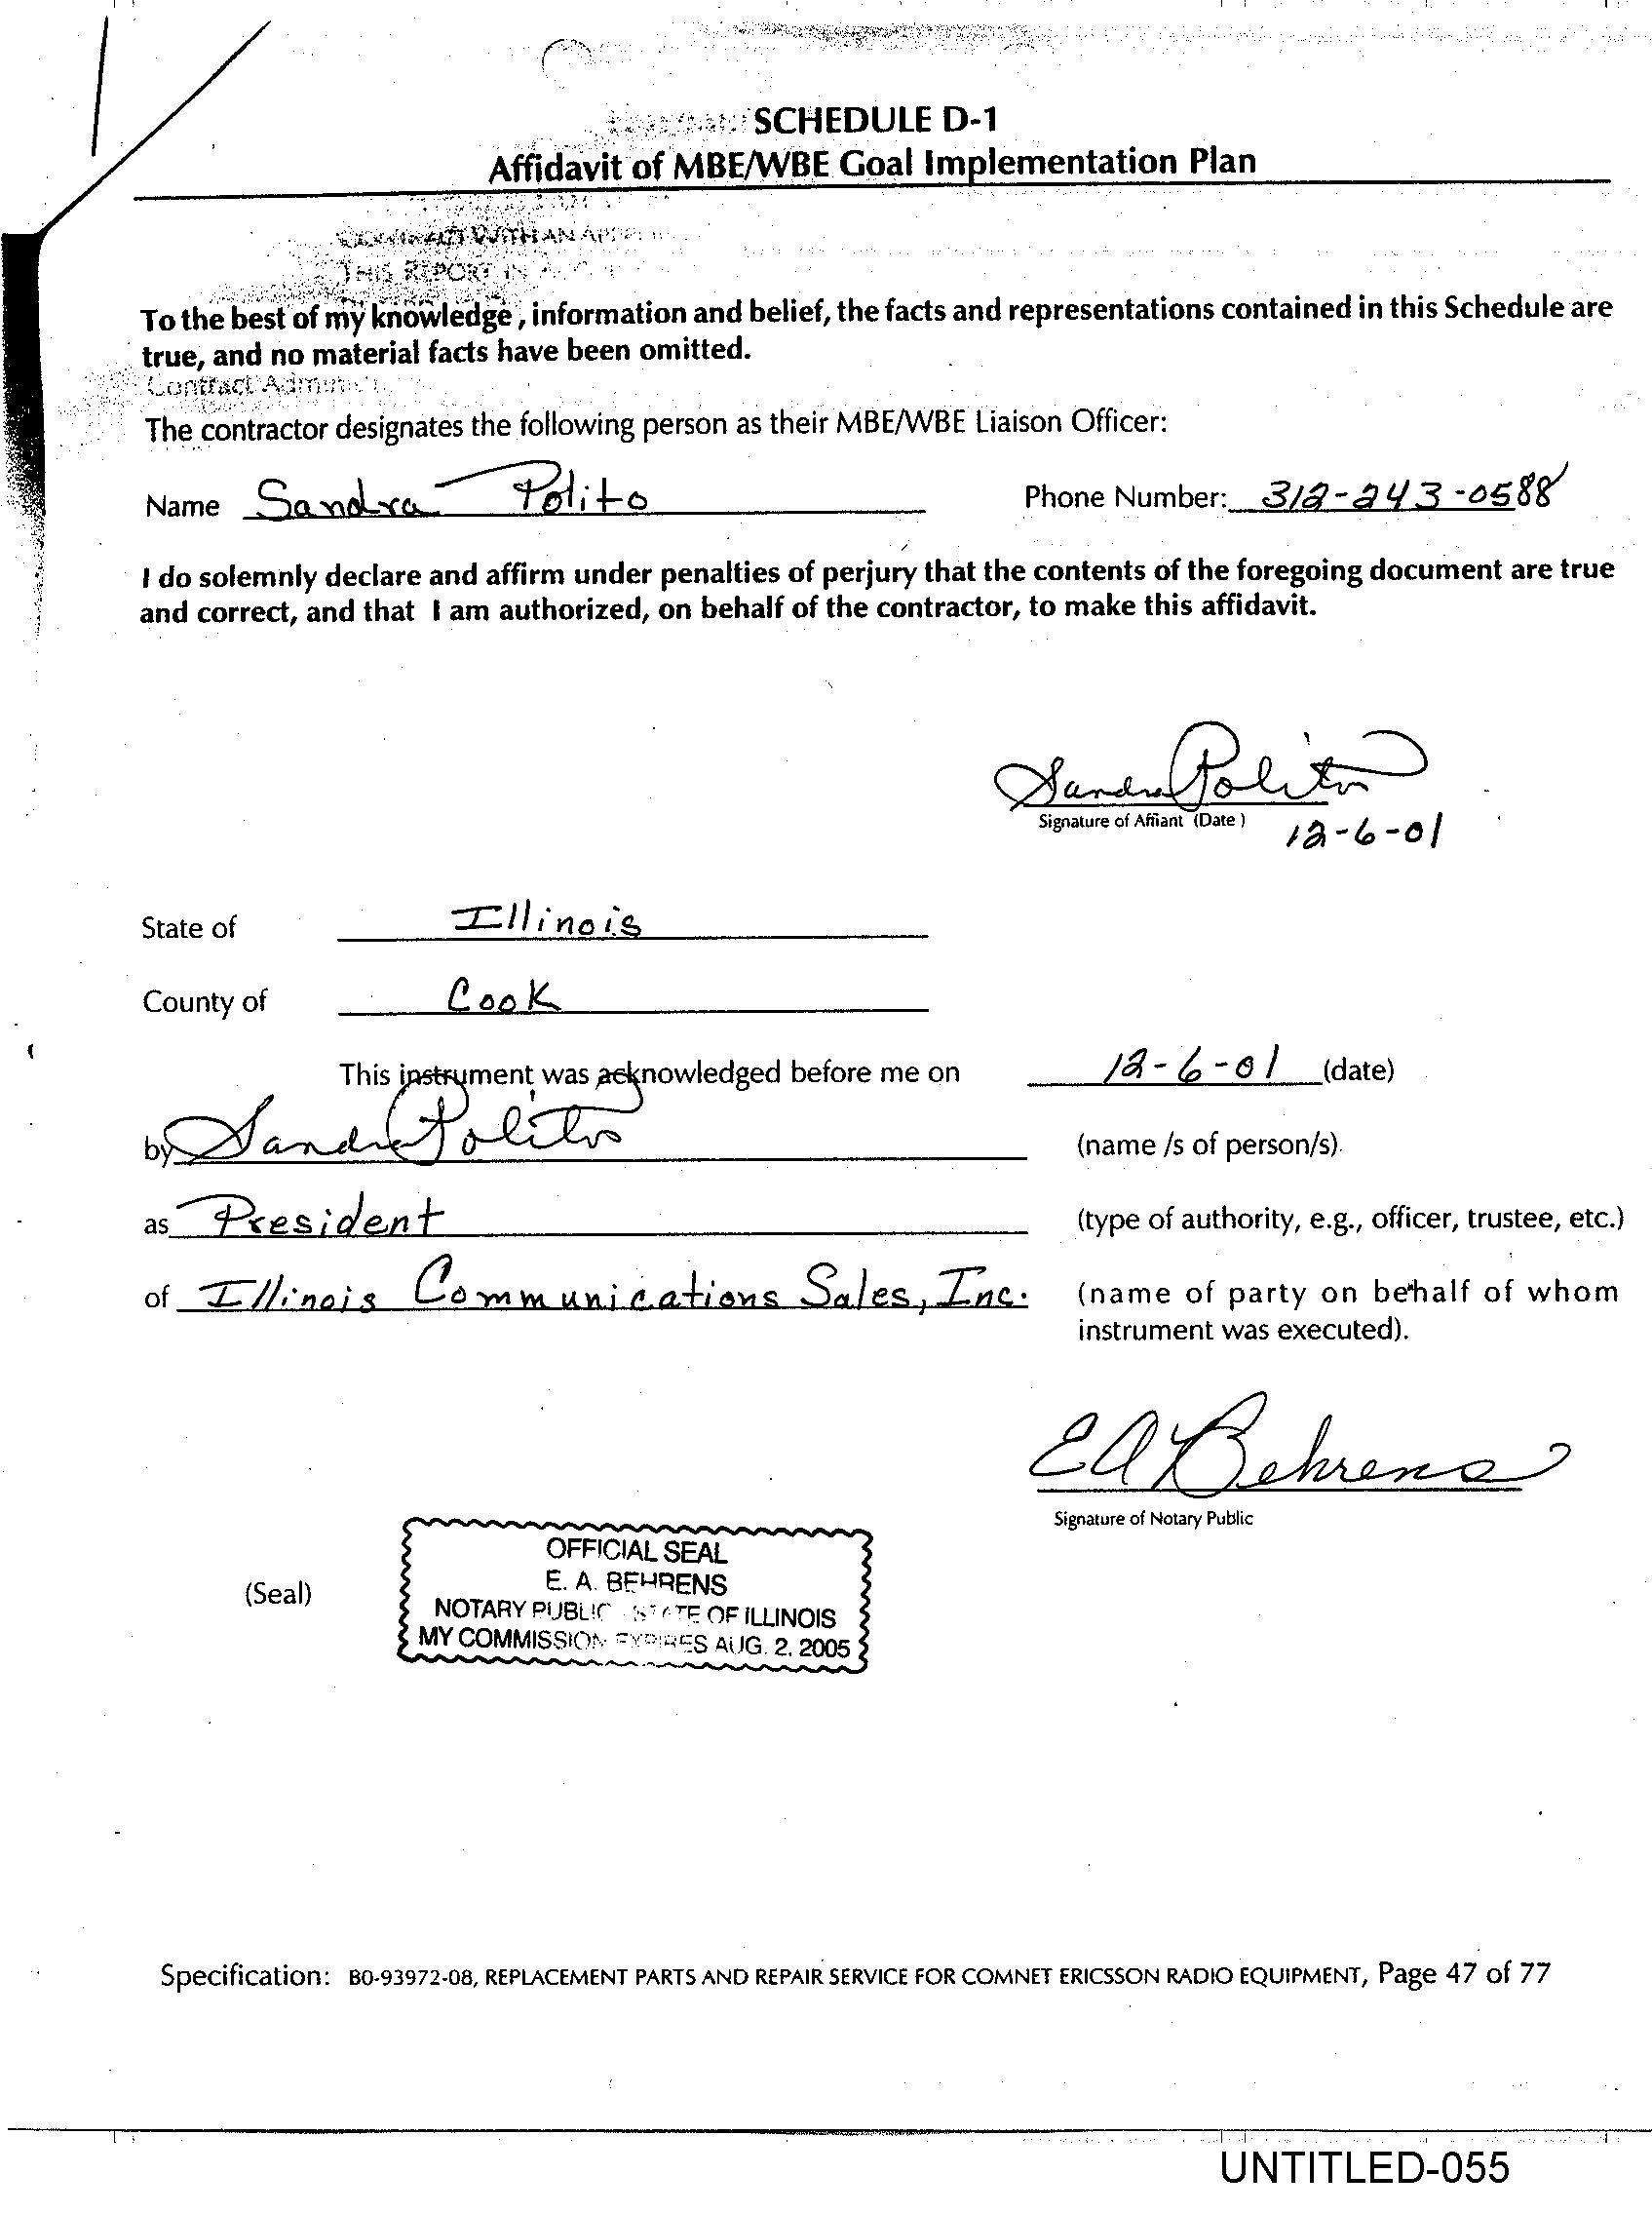 SCHEDULE D-1
Affidavit of MBE/WBE Goal Implementation Plan
WITH AN
THIS REPORT IN
To the best of my knowledge, information and belief, the facts and representations contained in this Schedule are
true, and no material facts have been omitted.
Contract
The contractor designates the following person as their MBE/WBE Liaison Officer:
Name Sandra Polito Phone Number: 312-243-0588
I do solemnly declare and affirm under penalties of perjury that the contents of the foregoing document are true
and correct, and that I am authorized, on behalf of the contractor, to make this affidavit.
Sandra Polito
Signature of Affiant (Date) 12-6-01
State of Illinois
County of Cook
This instrument was acknowledged before me on 12-6-01 (date)
by Sandra Polito (name /s of person/s).
as President (type of authority, e.g., officer, trustee, etc.)
of Illinois Communications Sales, Inc. (name of party on behalf of whom
instrument was executed).
EA Behrens
Signature of Notary Public
(Seal)
OFFICIAL SEAL
E. A. BEHRENS
NOTARY PUBLIC STATE OF ILLINOIS
MY COMMISSION EXPIRES AUG. 2, 2005
Specification: B0-93972-08, REPLACEMENT PARTS AND REPAIR SERVICE FOR COMNET ERICSSON RADIO EQUIPMENT, Page 47 of 77
UNTITLED-055